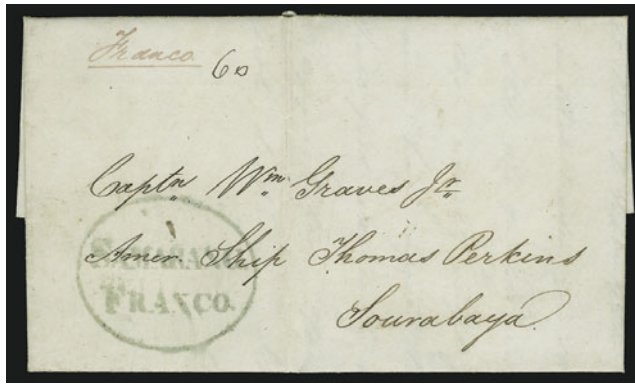 Franco
60
Captn Wm Graves Jr
Amer. Ship Thomas Perkins
Sourabaya.
SAMARANG
FRANCO.